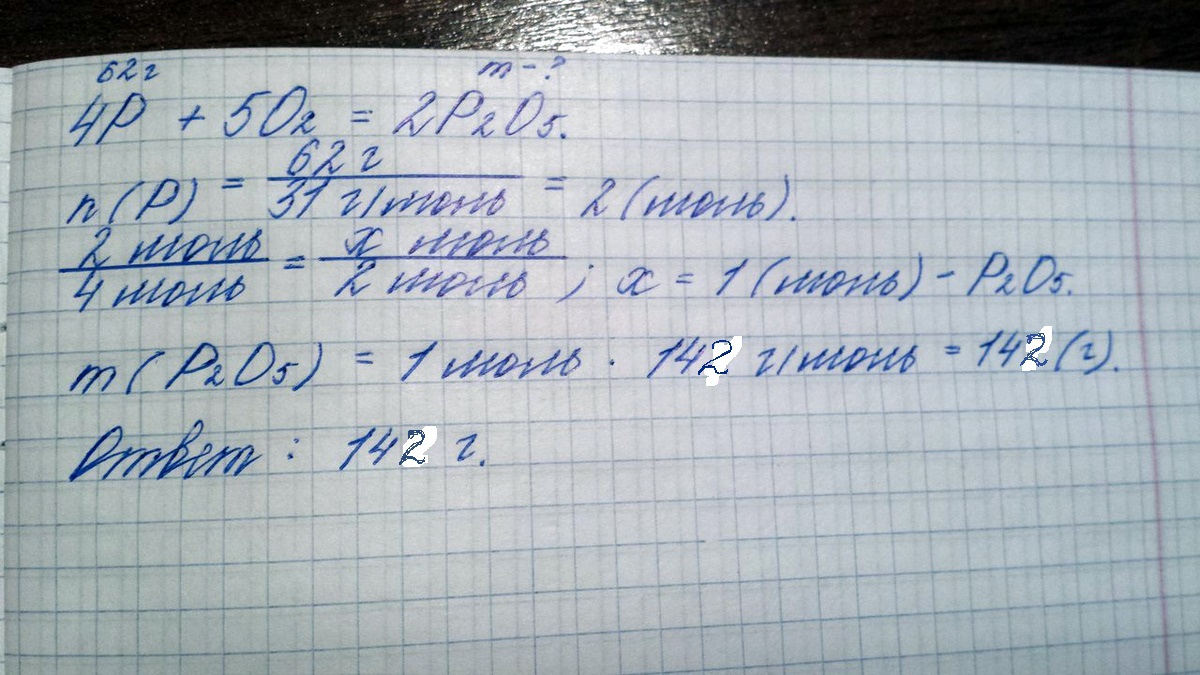 62г m - ?
4P + 5O₂ = 2P₂O₅.
n(P) = 62 г / 31 г/моль = 2 (моль).
2 моль / 4 моль = x моль / 2 моль ; x = 1 (моль) - P₂O₅.
m(P₂O₅) = 1 моль · 142 г/моль = 142 (г).
Ответ : 142 г.